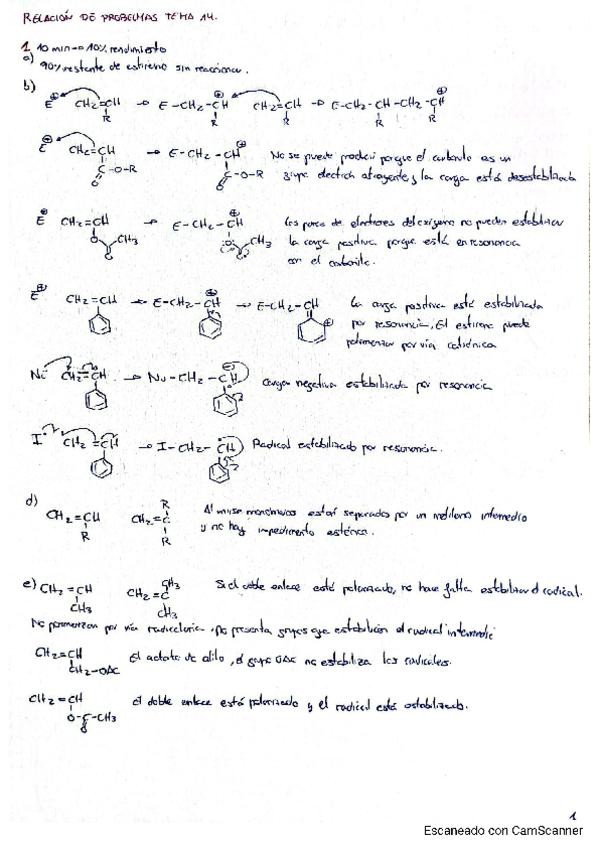 RELACIÓN DE PROBLEMAS TEMA 14.
1 10 min → 10% rendimiento
a) 90% restante de estireno sin reaccionar.
b)
E⊕ CH2=CH → E-CH2-CH⊕ CH2=CH → E-CH2-CH-CH2-CH⊕
R R R R
E⊕ CH2=CH → E-CH2-CH⊕ No se puede producir porque el carbonilo es un
C-O-R C-O-R grupo atrayente y la carga está desestabilizada
O O
E⊕ CH2=CH → E-CH2-CH⊕ Los pares de electrones del oxígeno no pueden estabilizar
O CH3 O CH3 la carga positiva porque está en resonancia
O O con el carbonilo.
E⊕ CH2=CH → E-CH2-CH⊕ → E-CH2-CH ⊕ La carga positiva está estabilizada
por resonancia, El estireno puede
polimerizar por vía catiónica
Nu CH2=CH → Nu-CH2-CH⊖ Carga negativa estabilizada por resonancia
I· CH2=CH → I-CH2-CH Radical estabilizado por resonancia.
d)
CH2=CH CH2=C Al unirse monómeros están separados por un metileno intermedio
R R R y no hay impedimento estérico.
e) CH2=CH CH2=C Si el doble enlace está polarizado, no hace falta estabilizar el radical.
CH3 CH3 CH3
No polimerizan por vía radicalaria, no presenta grupos que estabilicen el radical
CH2=CH El acetato de alilo, el grupo OAc no estabiliza los radicales.
CH2-OAc
CH2=CH El doble enlace está polarizado y el radical está estabilizado.
O-C-CH3
O
1
Escaneado con CamScanner